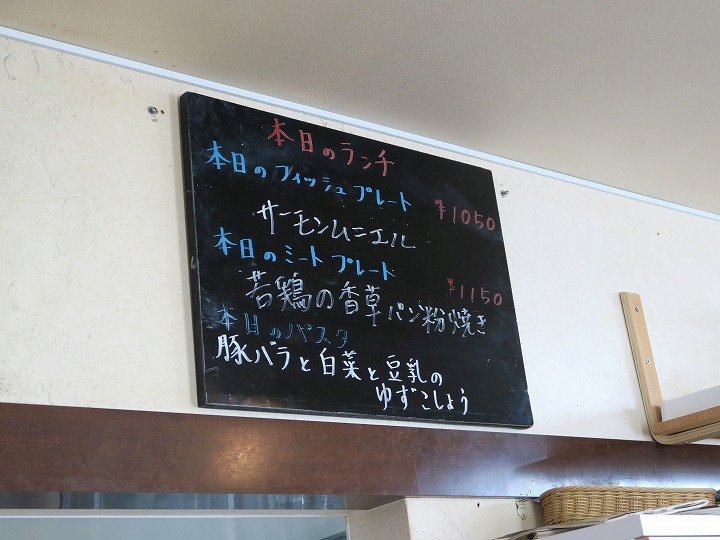 本日のランチ
本日のフィッシュプレート
¥1050
サーモンムニエル
本日のミートプレート
¥1150
若鶏の香草パン粉焼き
本日のパスタ
豚バラと白菜と豆乳の
ゆずこしょう